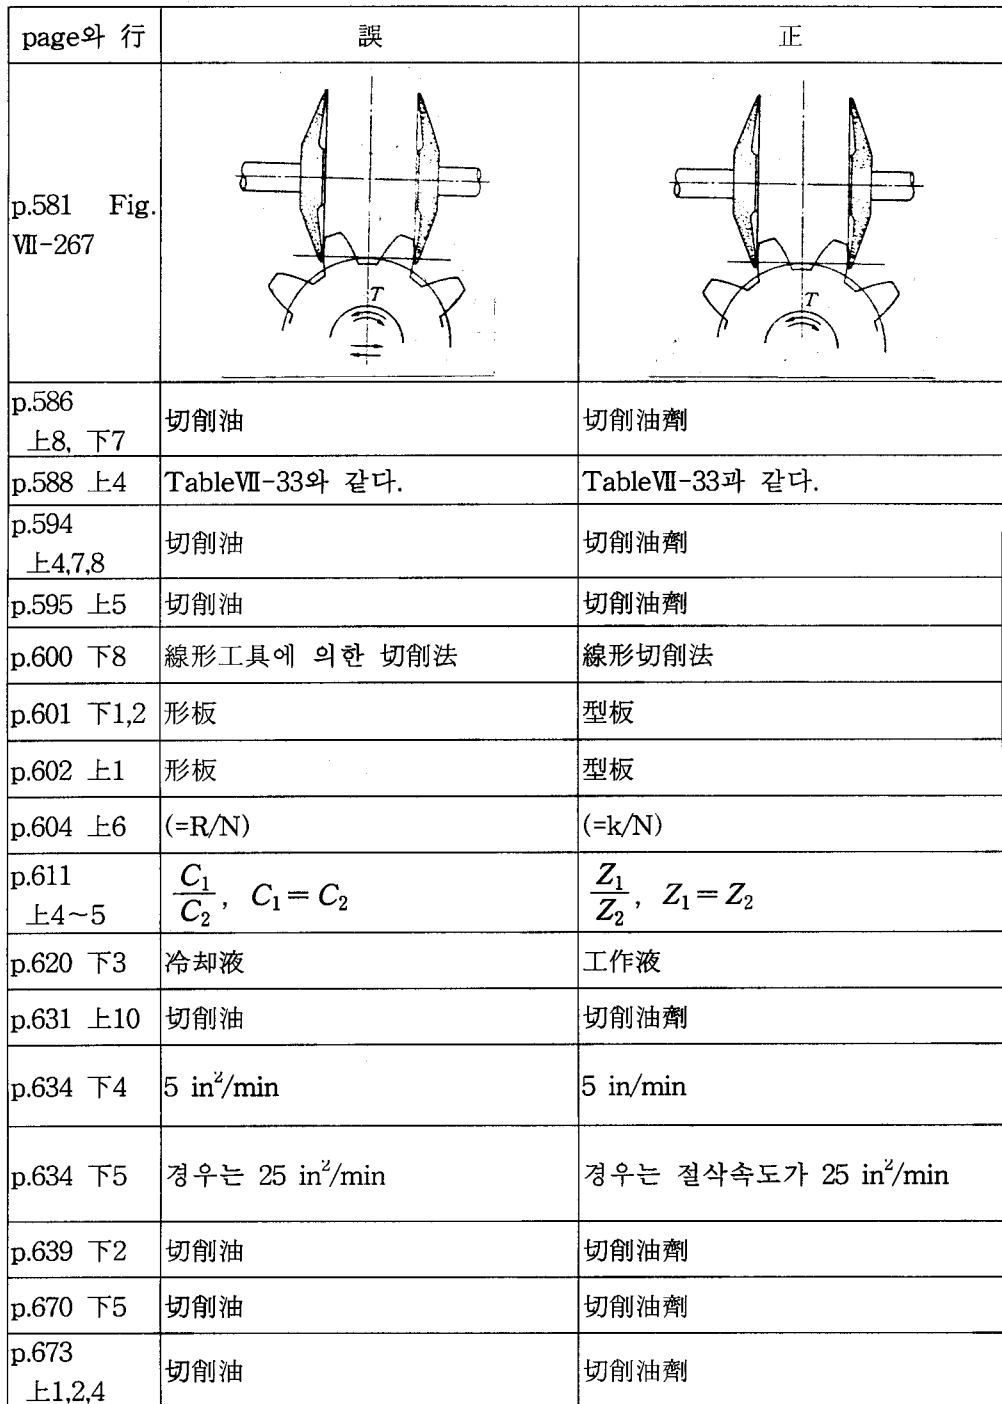 page와 行 誤 正
p.581 Fig.
Ⅶ-267
T
T
p.586
上8, 下7
切削油 切削油劑
p.588 上4 TableⅦ-33와 같다. TableⅦ-33과 같다.
p.594
上4,7,8
切削油 切削油劑
p.595 上5 切削油 切削油劑
p.600 下8 線形工具에 의한 切削法 線形切削法
p.601 下1,2 形板 型板
p.602 上1 形板 型板
p.604 上6 (=R/N) (=k/N)
p.611
上4~5
C₁/C₂, C₁＝C₂ Z₁/Z₂, Z₁＝Z₂
p.620 下3 冷却液 工作液
p.631 上10 切削油 切削油劑
p.634 下4 5 in²/min 5 in/min
p.634 下5 경우는 25 in²/min 경우는 절삭속도가 25 in²/min
p.639 下2 切削油 切削油劑
p.670 下5 切削油 切削油劑
p.673
上1,2,4
切削油 切削油劑